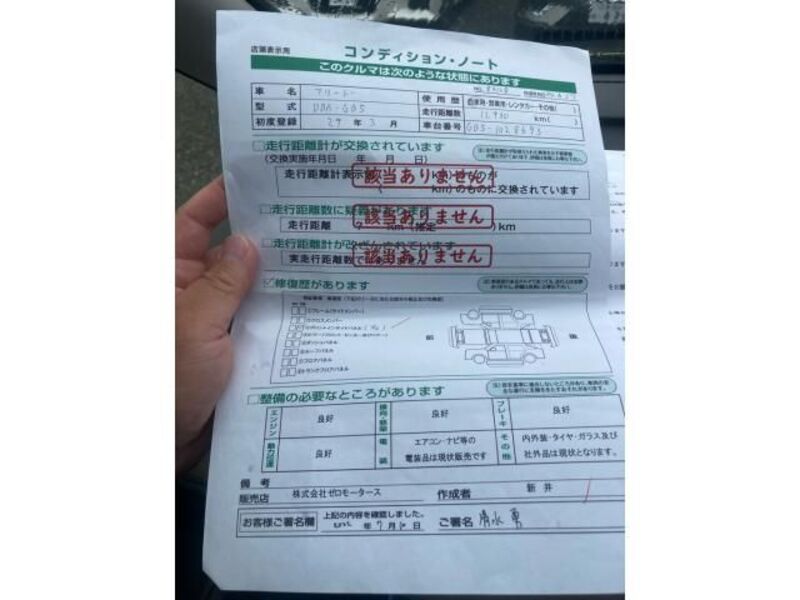 店頭表示用
コンディション・ノート
このクルマは次のような状態にあります
車名 フリード
型式 DBA-GB5
初度登録 29年3月
使用歴 自家用・営業用・レンタカー・その他( )
走行距離数 km( )
車台番号 GB5-1028693
□走行距離計が交換されています
(交換実施年月日 年 月 日)
走行距離計表示 km)のものが
( km)のものに交換されています
該当ありません
□走行距離数に疑義があります
走行距離 ? km(推定 )km
該当ありません
□走行距離計が改ざんされています
実走行距離数ではありません
該当ありません
☑修復歴があります
①フレーム(サイドメンバー)
②クロスメンバー
⑤ダッシュパネル
⑥ルーフパネル
⑦フロアパネル
⑧トランクフロアパネル
前 後
□整備の必要なところがあります
エンジン 良好
操向・懸架 良好
ブレーキ 良好
動力伝達 良好
電装 エアコン・ナビ等の
電装品は現状販売です
その他 内外装・タイヤ・ガラス及び
社外品は現状となります。
備考
販売店 株式会社ゼロモータース
作成者 新井
お客様ご署名欄
上記の内容を確認しました。
年7月 日
ご署名 清水 勇